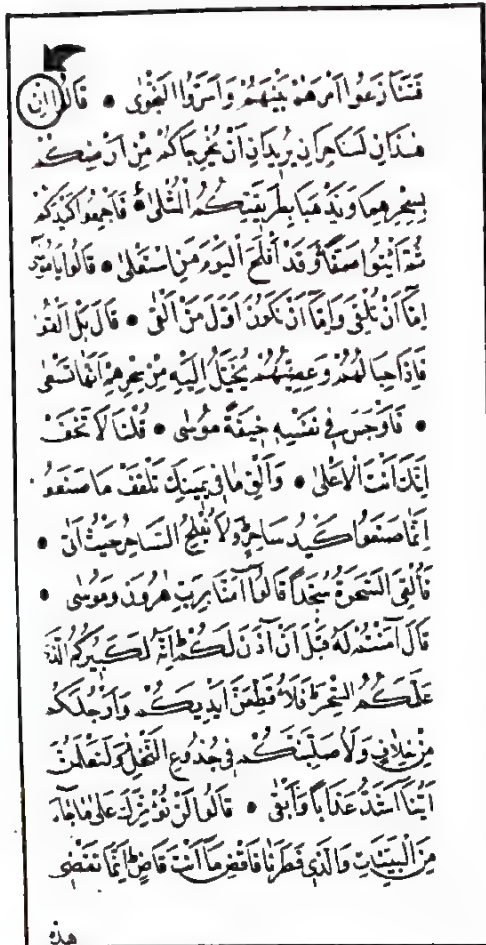 فَتَنَازَعُوا اَمْرَهُمْ بَيْنَهُمْ وَاَسَرُّوا النَّجْوٰى • قَالُوا اِنْ
هٰذَانِ لَسَاحِرَانِ يُرِيدَانِ اَنْ يُخْرِجَاكُمْ مِنْ اَرْضِكُمْ
بِسِحْرِهِمَا وَيَذْهَبَا بِطَرِيقَتِكُمُ الْمُثْلٰى • فَاَجْمِعُوا كَيْدَكُمْ
ثُمَّ ائْتُوا صَفًّا وَقَدْ اَفْلَحَ الْيَوْمَ مَنِ اسْتَعْلٰى • قَالُوا يَا مُوسٰٓى
اِمَّٓا اَنْ تُلْقِىَ وَاِمَّٓا اَنْ نَكُونَ اَوَّلَ مَنْ اَلْقٰى • قَالَ بَلْ اَلْقُوا
فَاِذَا حِبَالُهُمْ وَعِصِيُّهُمْ يُخَيَّلُ اِلَيْهِ مِنْ سِحْرِهِمْ اَنَّهَا تَسْعٰى
• فَاَوْجَسَ فِى نَفْسِهِ خِيفَةً مُوسٰى • قُلْنَا لَا تَخَفْ
اِنَّكَ اَنْتَ الْاَعْلٰى • وَاَلْقِ مَا فِى يَمِينِكَ تَلْقَفْ مَا صَنَعُوا
اِنَّمَا صَنَعُوا كَيْدُ سَاحِرٍ وَلَا يُفْلِحُ السَّاحِرُ حَيْثُ اَتٰى •
فَاُلْقِىَ السَّحَرَةُ سُجَّدًا قَالُٓوا اٰمَنَّا بِرَبِّ هٰرُونَ وَمُوسٰى •
قَالَ اٰمَنْتُمْ لَهُ قَبْلَ اَنْ اٰذَنَ لَكُمْ اِنَّهُ لَكَبِيرُكُمُ الَّذِى
عَلَّمَكُمُ السِّحْرَ فَلَاُقَطِّعَنَّ اَيْدِيَكُمْ وَاَرْجُلَكُمْ
مِنْ خِلَافٍ وَلَاُصَلِّبَنَّكُمْ فِى جُذُوعِ النَّخْلِ وَلَتَعْلَمُنَّ
اَيُّنَٓا اَشَدُّ عَذَابًا وَاَبْقٰى • قَالُوا لَنْ نُؤْثِرَكَ عَلٰى مَا جَٓاءَنَا
مِنَ الْبَيِّنَاتِ وَالَّذِى فَطَرَنَا فَاقْضِ مَٓا اَنْتَ قَاضٍ اِنَّمَا تَقْضِى
هٰذِهِ